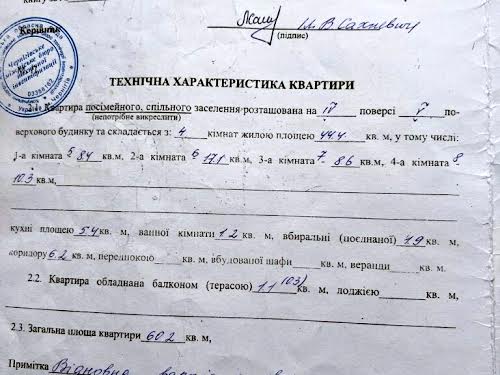 Керівник
М.В.Сахневич
(підпис)
Чернігівське
міжміське бюро
технічної
інвентаризації
03358162
ТЕХНІЧНА ХАРАКТЕРИСТИКА КВАРТИРИ
2.1. Квартира посімейного, спільного заселення розташована на IV поверсі V по-
(непотрібне викреслити)
верхового будинку та складається з: 4 кімнат жилою площею 44.4 кв. м, у тому числі:
1-а кімната 5 8.4 кв.м, 2-а кімната 6 17.1 кв. м, 3-а кімната 7 8.6 кв. м, 4-а кімната 8
10.3 кв.м,
кухні площею 5.4 кв. м, ванної кімнати 1.2 кв. м, вбиральні (поєднаної) 1.9 кв. м,
коридору 6.2 кв. м, передпокою кв. м, вбудованої шафи кв. м, веранди кв. м.
2.2. Квартира обладнана балконом (терасою) 1.1 (0.3) кв. м, лоджією кв. м,
2.3. Загальна площа квартири 60.2 кв. м,
Примітка Відповідно